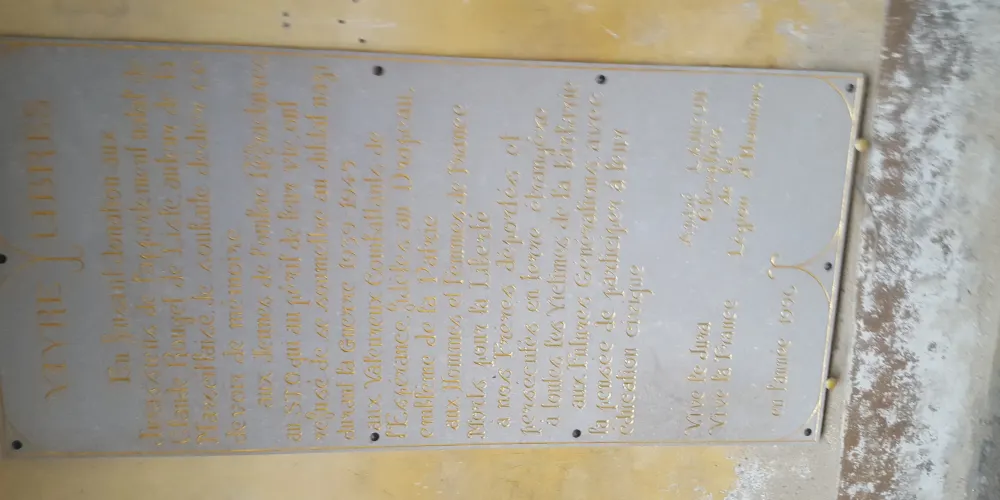 VIVRE LIBRES
En faisant donation aux
du département natal de
Claude Rouget de Lisle auteur de la
Marseillaise, je souhaite dédier ce
devoir de mémoire
aux Jeunes de l'empire
au S.T.O. qui au péril de leur vie ont
refusé de se soumettre au
durant la Guerre 1939 1945
aux Valeureux Combattants de
l'Espérance, fidèles au Drapeau,
emblème de la Patrie
aux Hommes et Femmes de France
Morts pour la Liberté
à nos Frères déportés et
persécutés en terre étrangère
à toutes les Victimes de la Barbarie
aux Futures Générations avec
la pensée de participer à leur
éducation civique
Vive le Jura
Vive la France
Chevalier
de la
Légion d'Honneur
en l'année 1996